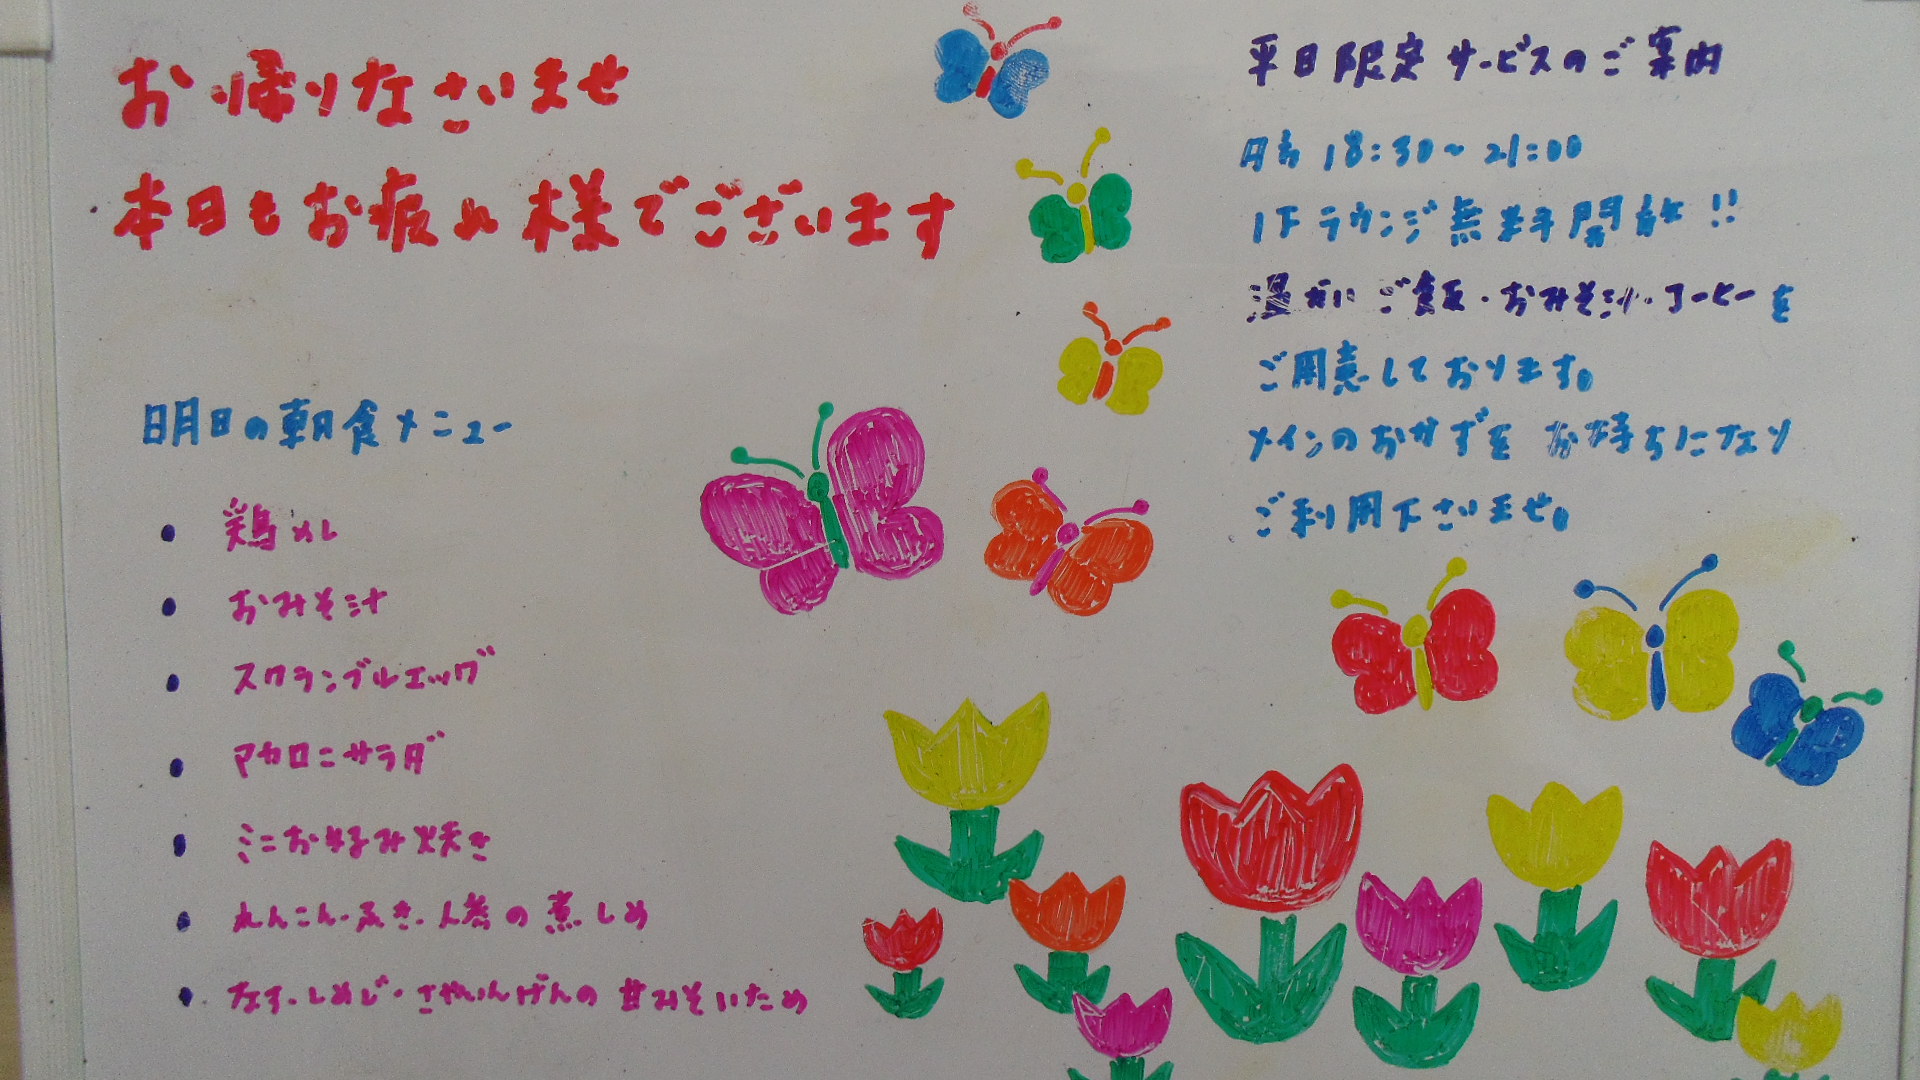 お帰りなさいませ
本日もお疲れ様でございます
明日の朝食メニュー
• 鶏めし
• おみそ汁
• スクランブルエッグ
• マカロニサラダ
• ミニお好み焼き
• れんこん・ふき・人参の煮しめ
• なす・しめじ・さやいんげんの甘みそいため
平日限定サービスのご案内
18:30~21:00
1Fラウンジ無料開放!!
温かいご飯・おみそ汁・コーヒーを
ご用意しております。
メインのおかずをお持ちになり
ご利用下さいませ。